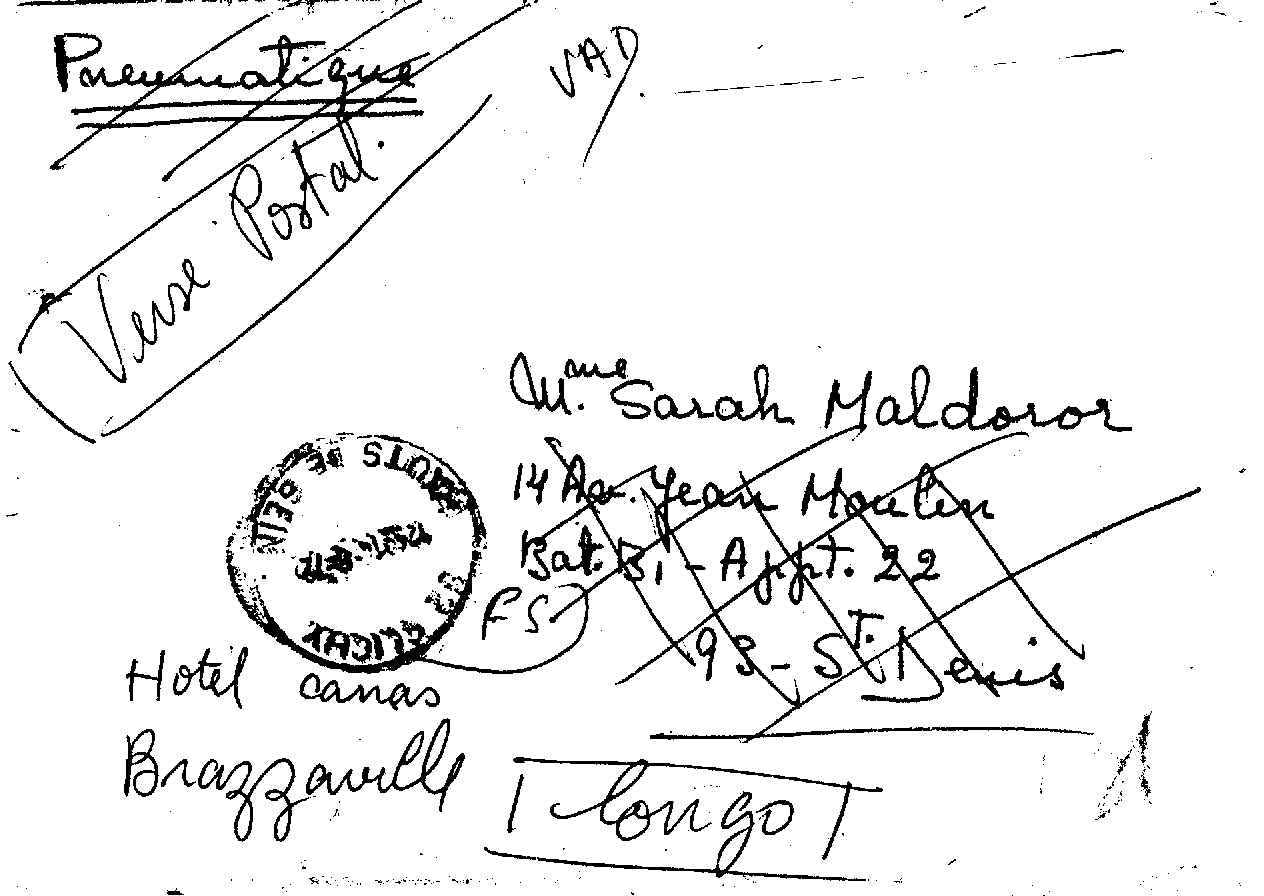 Pneumatique
VAD
Verse Postal.
Mme. Sarah Maldoror
14 Av. Jean Moulin
Bat. B1 - Appt. 22
93 - St. Denis
HAUTS DE SEINE
92 CLICHY
FS
Hotel canas
Brazzaville
Congo